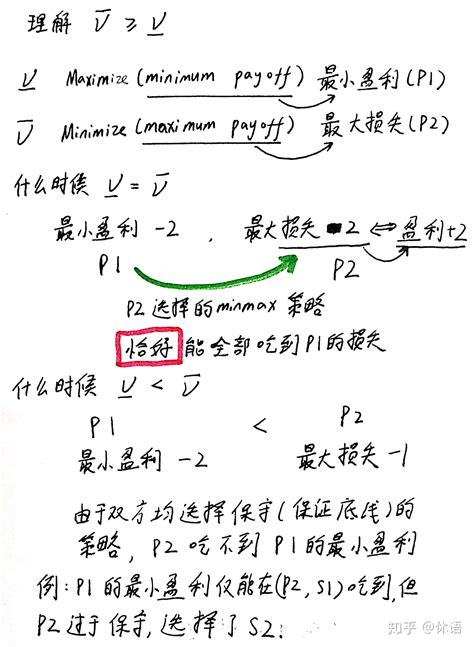 理解 V̅ ≥ V̲
V̲ Maximize (minimum payoff) 最小盈利(P1)
V̅ Minimize (maximum payoff) 最大损失(P2)
什么时候 V̲ = V̅
最小盈利 -2 , 最大损失 -2 ⇔ 盈利+2
P1 P2
P2选择的minmax 策略
恰好 能全部吃到P1的损失
什么时候 V̲ < V̅
P1 < P2
最小盈利 -2 最大损失 -1
由于双方均选择保守(保证底线)的
策略, P2吃不到P1的最小盈利
例:P1的最小盈利仅能在(P2, S1)吃到,但
P2过于保守,选择了S2.
知乎 @休语